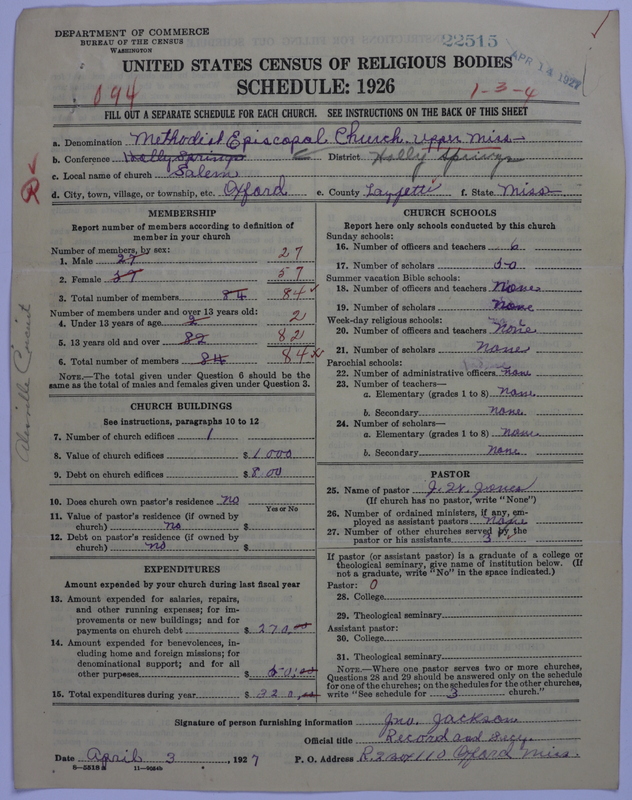 DEPARTMENT OF COMMERCE
BUREAU OF THE CENSUS
WASHINGTON
22515
APR 14 1927
UNITED STATES CENSUS OF RELIGIOUS BODIES
SCHEDULE: 1926
094
1-3-4
FILL OUT A SEPARATE SCHEDULE FOR EACH CHURCH. SEE INSTRUCTIONS ON THE BACK OF THIS SHEET
a. Denomination Methodist Episcopal Church, Upper Miss
b. Conference Holly Springs District Holly Springs
c. Local name of church Salem
d. City, town, village, or township, etc. Oxford e. County Layfette f. State Miss
MEMBERSHIP
Report number of members according to definition of
member in your church
Number of members, by sex:
1. Male 27 27
2. Female 57 57
3. Total number of members 84 84
Number of members under and over 13 years old:
4. Under 13 years of age 2 2
5. 13 years old and over 82 82
6. Total number of members 84 84
NOTE.—The total given under Question 6 should be
same as the total of males and females given under Question 3.
CHURCH BUILDINGS
See instructions, paragraphs 10 to 12
7. Number of church edifices 1
8. Value of church edifices $ 1000
9. Debt on church edifices $ 8.00
10. Does church own pastor's residence no
Yes or No
11. Value of pastor's residence (if owned by
church) no $
12. Debt on pastor's residence (if owned by
church) no $
EXPENDITURES
Amount expended by your church during last fiscal year
13. Amount expended for salaries, repairs,
and other running expenses; for im-
provements or new buildings; and for
payments on church debt $ 270.00
14. Amount expended for benevolences, in-
cluding home and foreign missions; for
denominational support; and for all
other purposes $ 50.00
15. Total expenditures during year $ 320.00
CHURCH SCHOOLS
Report here only schools conducted by this church
Sunday schools:
16. Number of officers and teachers 6
17. Number of scholars 50
Summer vacation Bible schools:
18. Number of officers and teachers None
19. Number of scholars None
Week-day religious schools:
20. Number of officers and teachers None
21. Number of scholars None
Parochial schools:
22. Number of administrative officers None
23. Number of teachers—
a. Elementary (grades 1 to 8) None
b. Secondary None
24. Number of scholars—
a. Elementary (grades 1 to 8) None
b. Secondary None
PASTOR
25. Name of pastor J. W. Jones
(If church has no pastor, write "None")
26. Number of ordained ministers, if any, em-
ployed as assistant pastors None
27. Number of other churches served by the
pastor or his assistants 3
If pastor (or assistant pastor) is a graduate of a college or
theological seminary, give name of institution below. (If
not a graduate, write "No" in the space indicated.)
Pastor: 0
28. College
29. Theological seminary
Assistant pastor:
30. College
31. Theological seminary
NOTE.—Where one pastor serves two or more churches,
Questions 28 and 29 should be answered only on the schedule
for one of the churches; on the schedules for the other churches,
write "See schedule for 3 church."
Signature of person furnishing information Jno. Jackson
Official title Record and Secy.
Date April 3, 1927 P. O. Address R.2 Box 110 Oxford Miss.
8-5518 11-9024b